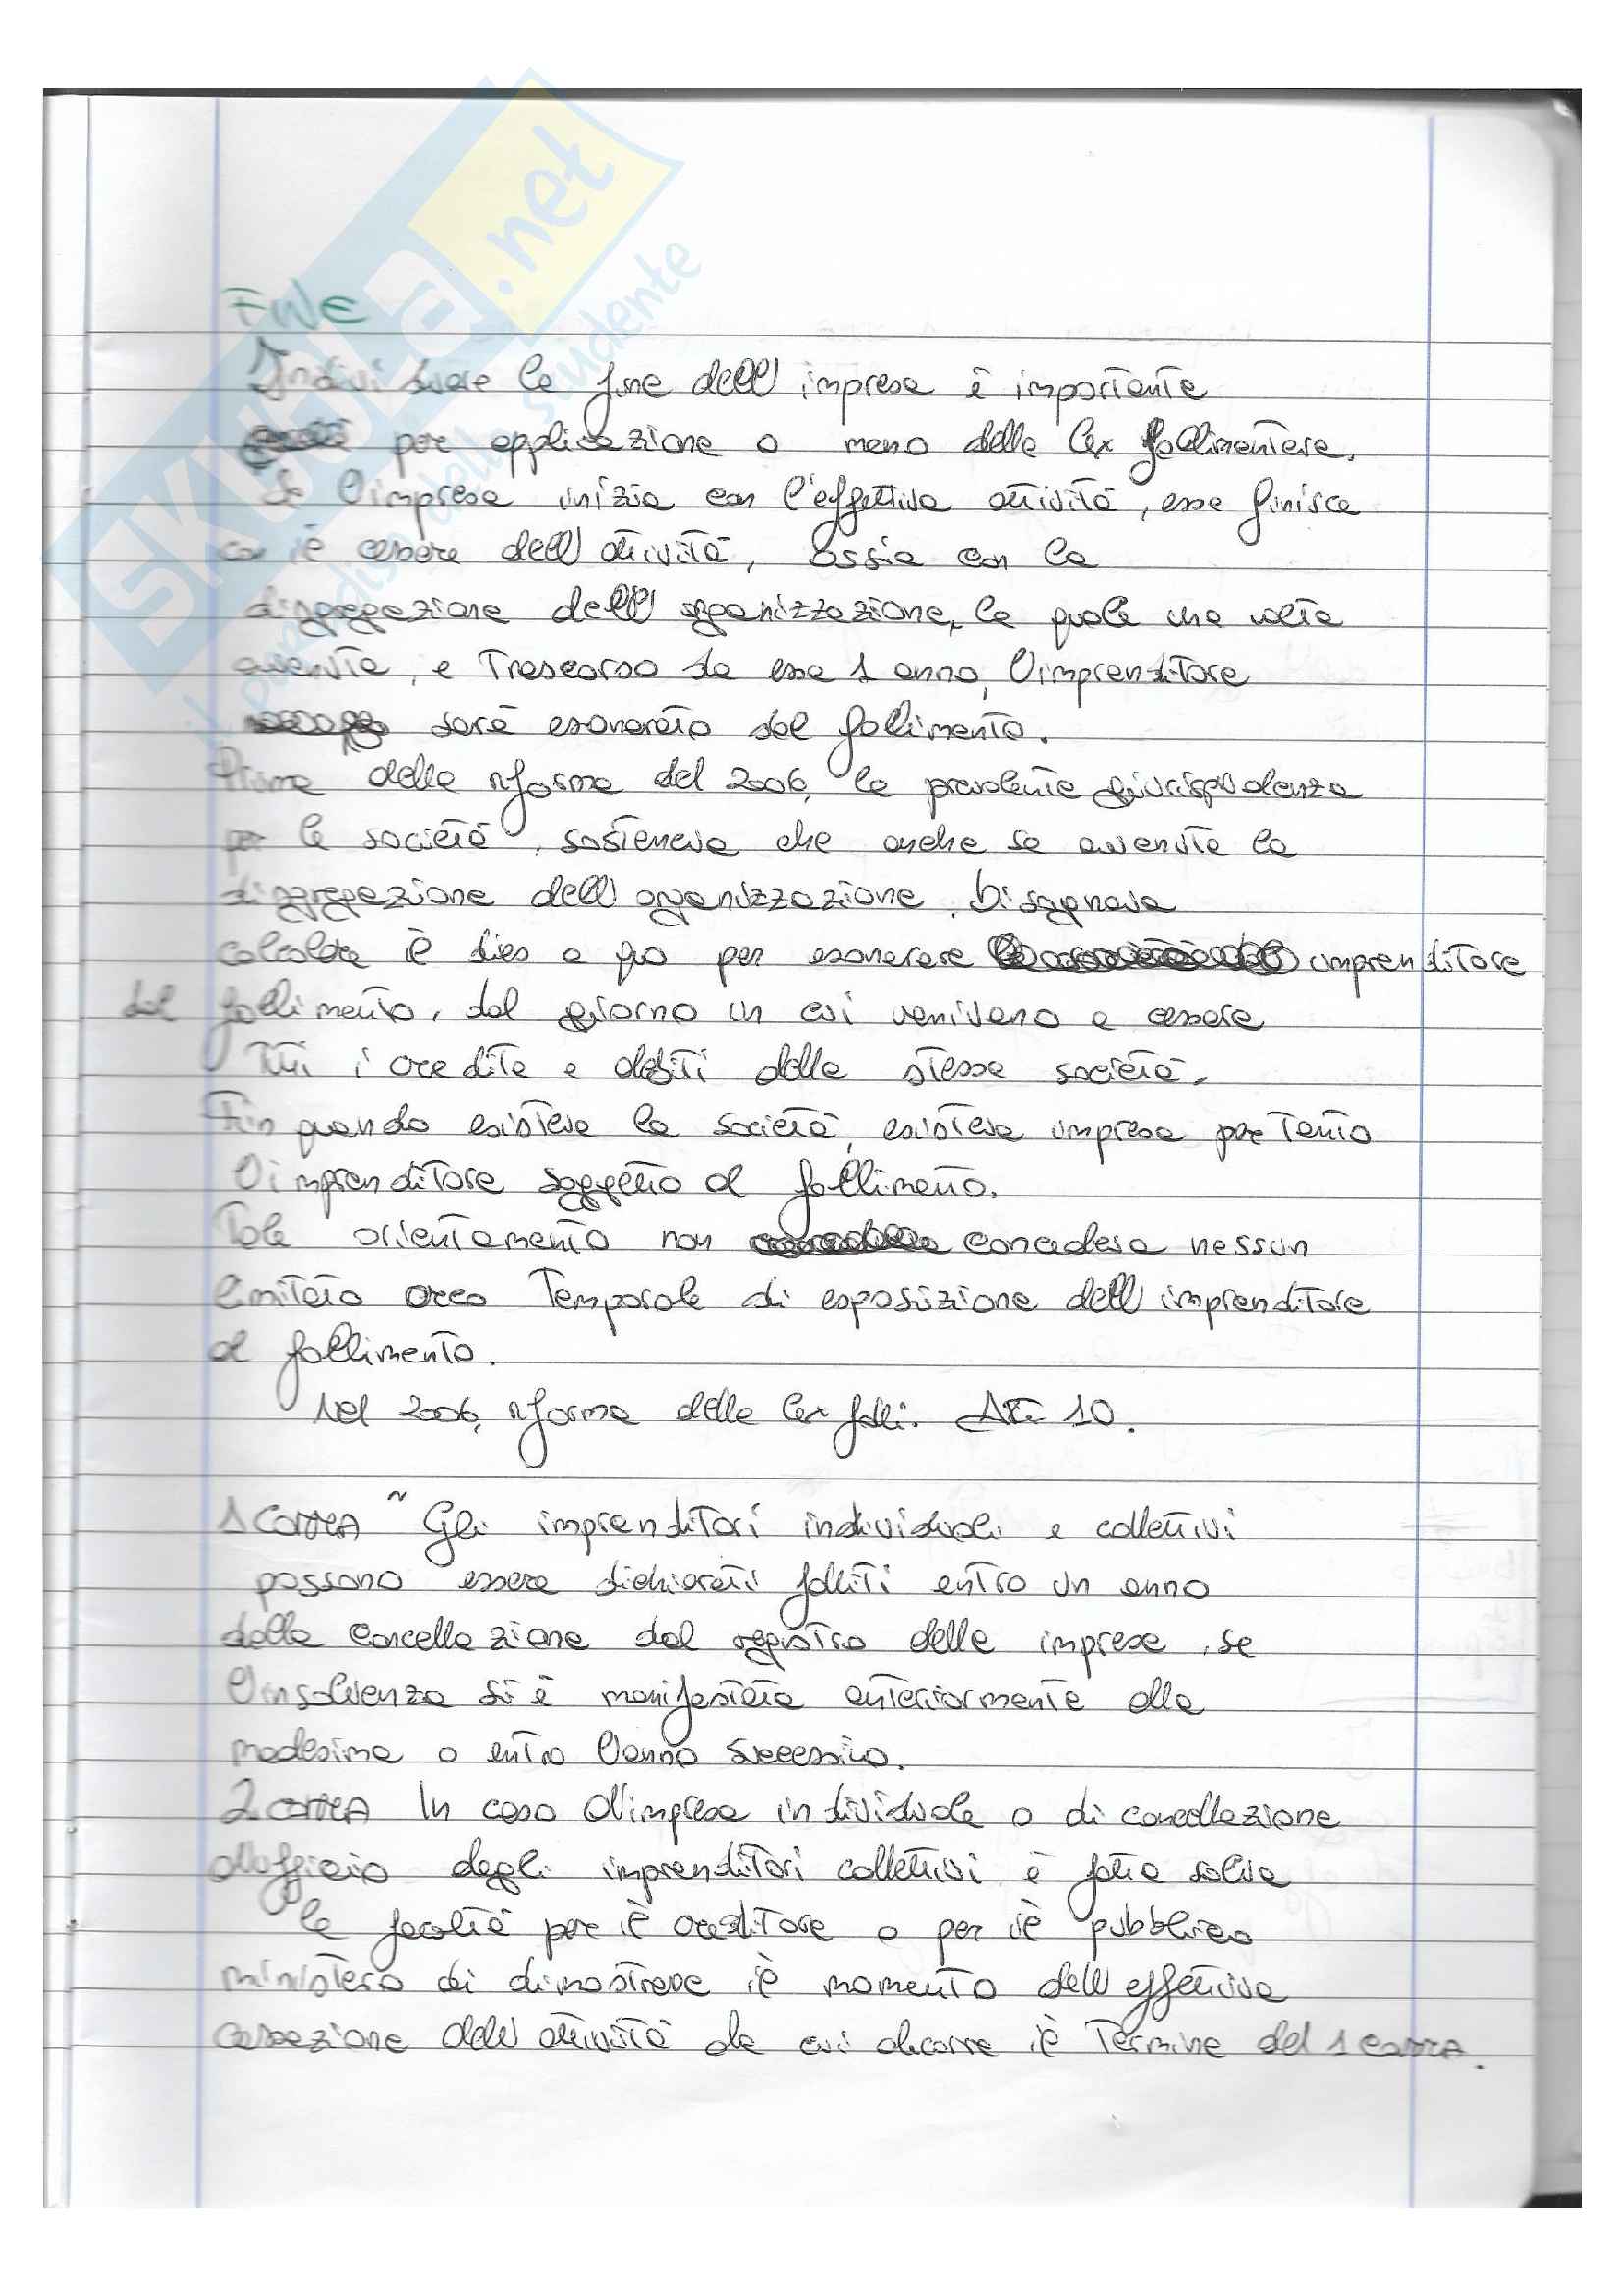 SKUOLA.net
il paradiso dello studente
FINE
Individuare la fine dell'impresa è importante
per applicazione o meno della lex fallimentare.
Se l'impresa inizia con l'effettiva attività, essa finisce
con il cessare dell'attività, ossia con la
disgregazione dell'organizzazione, la quale una volta
avvenuta, e trascorso da essa 1 anno, l'imprenditore
sarà esonerato dal fallimento.
Prima della riforma del 2006, la prevalente giurisprudenza
per le società, sosteneva che anche se avvenuta la
disgregazione dell'organizzazione, bisognava
calcolare il dies a quo per esonerare imprenditore
dal fallimento, dal giorno in cui venivano a cessare
tutti i crediti e debiti della stessa società.
Fin quando esisteva la società, esisteva impresa per tanto
l'imprenditore soggetto al fallimento.
Tale orientamento non concedeva nessun
limitato arco temporale di esposizione dell'imprenditore
al fallimento.
Nel 2006, riforma della lex fall. Art 10.
1 COMMA " Gli imprenditori individuali e collettivi
possono essere dichiarati falliti entro un anno
dalla cancellazione dal registro delle imprese, se
l'insolvenza si è manifestata anteriormente alla
medesima o entro l'anno successivo.
2 COMMA In caso d'impresa individuale o di cancellazione
d'ufficio degli imprenditori collettivi è fatta salva
la facoltà per il creditore o per il pubblico
ministero di dimostrare il momento dell'effettiva
cessazione dell'attività da cui decorre il termine del 1 COMMA.